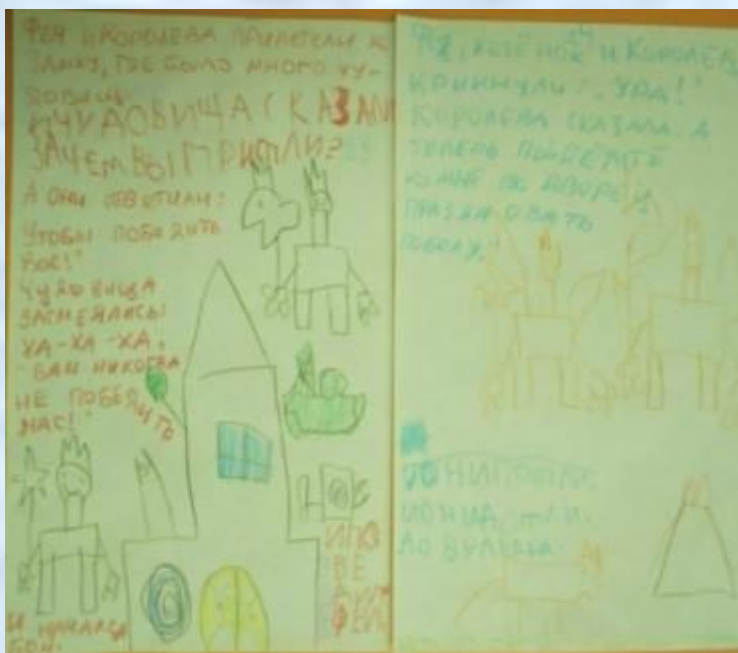 ФЕЯ И КОРОЛЕВА ПРИЛЕТЕЛИ К
ЗАМКУ, ГДЕ БЫЛО МНОГО ЧУ-
ДОВИЩ.
И ЧУДОВИЩА СКАЗАЛИ
ЗАЧЕМ ВЫ ПРИШЛИ?
А ОНИ ОТВЕТИЛИ:
ЧТОБЫ ПОБЕДИТЬ
ВАС!"
ЧУДОВИЩА
ЗАСМЕЯЛИСЬ:
ХА-ХА-ХА.
"ВАМ НИКОГДА
НЕ ПОБЕДИТЬ
НАС!"
И НАЧАЛСЯ
БОЙ.
КОТЁНОК И КОРОЛЕВА
КРИКНУЛИ: "УРА!"
КОРОЛЕВА СКАЗАЛА: А
ТЕПЕРЬ ПОЙДЁМТЕ
КО МНЕ ВО ДВОРЕЦ
ПРАЗДНОВАТЬ
ПОБЕДУ."